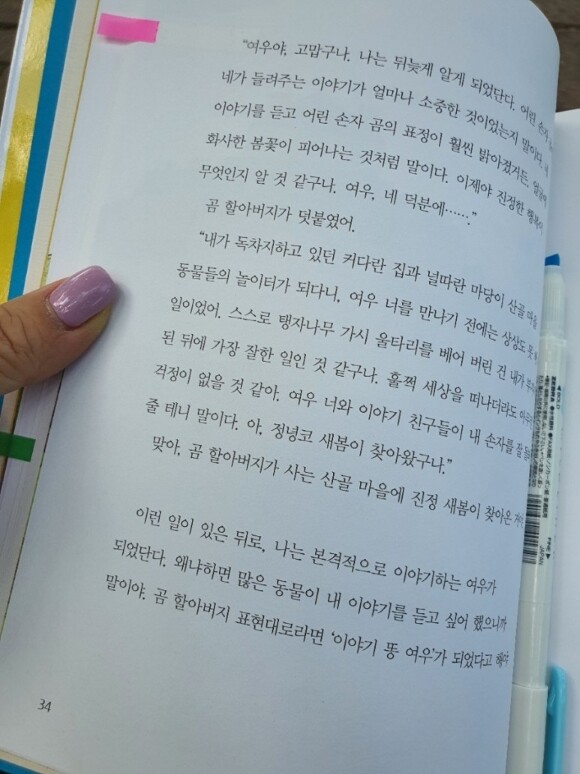 “여우야, 고맙구나. 나는 뒤늦게 알게 되었단다. 어린 손자
네가 들려주는 이야기가 얼마나 소중한 것이었는지 말이다. 네
이야기를 듣고 어린 손자 곰의 표정이 훨씬 밝아졌거든. 얼굴에
화사한 봄꽃이 피어나는 것처럼 말이다. 이제야 진정한 행복이
무엇인지 알 것 같구나. 여우, 네 덕분에…….”
곰 할아버지가 덧붙였어.
“내가 독차지하고 있던 커다란 집과 널따란 마당이 산골 마을
동물들의 놀이터가 되다니, 여우 너를 만나기 전에는 상상도 못 할
일이었어. 스스로 탱자나무 가시 울타리를 베어 버린 건 내가
된 뒤에 가장 잘한 일인 것 같구나. 훌쩍 세상을 떠나더라도
걱정이 없을 것 같아. 여우 너와 이야기 친구들이 내 손자를 잘
줄 테니 말이다. 아, 정녕코 새봄이 찾아왔구나.”
맞아, 곰 할아버지가 사는 산골 마을에 진정 새봄이 찾아온
이런 일이 있은 뒤로, 나는 본격적으로 이야기하는 여우가
되었단다. 왜냐하면 많은 동물이 내 이야기를 듣고 싶어 했으니까
말이야. 곰 할아버지 표현대로라면 ‘이야기 똥 여우’가 되었다고 해야
34
JAPAN